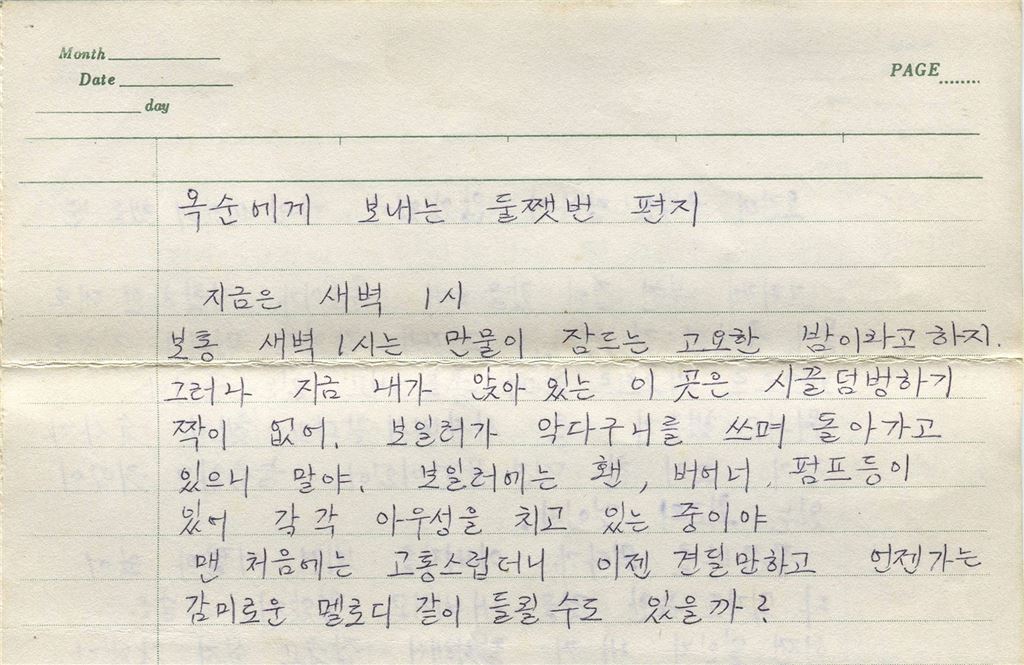 Month
Date
day
PAGE
옥순에게 보내는 둘쨋번 편지
지금은 새벽 1시
보통 새벽 1시는 만물이 잠드는 고요한 밤이라고 하지.
그러나 지금 내가 앉아 있는 이 곳은 시끌덤벙하기
짝이 없어. 보일러가 악다구니를 쓰며 돌아가고
있으니 말야. 보일러에는 홴, 버어너, 펌프등이
있어 각각 아우성을 치고 있는 중이야
맨 처음에는 고통스럽더니 이젠 견딜만하고 언젠가는
감미로운 멜로디 같이 들릴 수도 있을까?